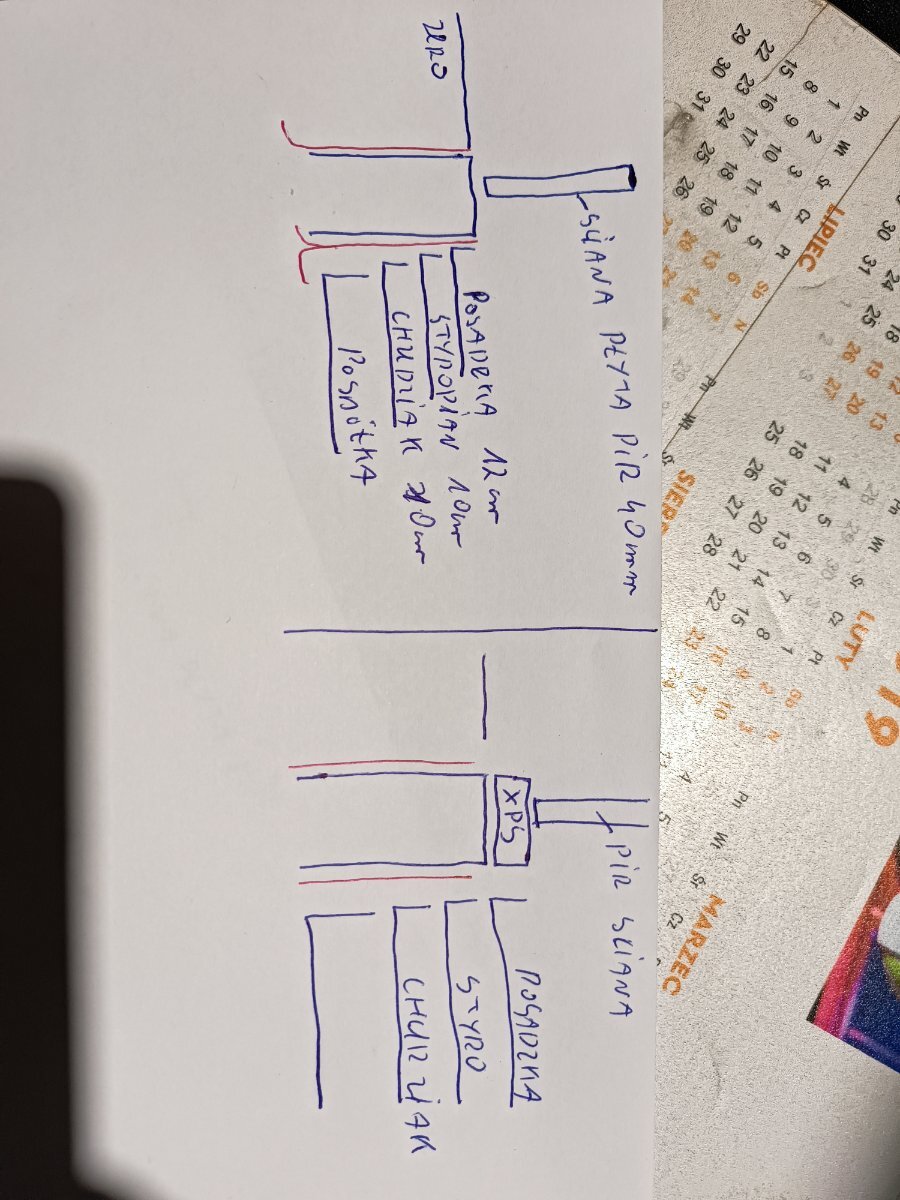 ZERO
ŚCIANA PŁYTA PIR 40mm
POSADZKA 12cm
STYROPIAN 10cm
CHUDZIAK 10cm
POSPÓŁKA
XPS
PIR ŚCIANA
POSADZKA
STYRO
CHUDZIAK
LIPIEC
Pn Wt Śr Cz Pt Sb N
1 2 3 4 5 6 7
8 9 10 11 12 13 14
15 16 17 18 19
22 23 24 25 26
29 30 31
LUTY
Pn Wt Śr Cz Pt Sb N
1 2 3
4 5 6 7 8 9 10
11 12 13 14 15 16 17
18 19 20 21 22 23
25 26 27 28
MARZEC
Pn Wt Śr Cz
4 5